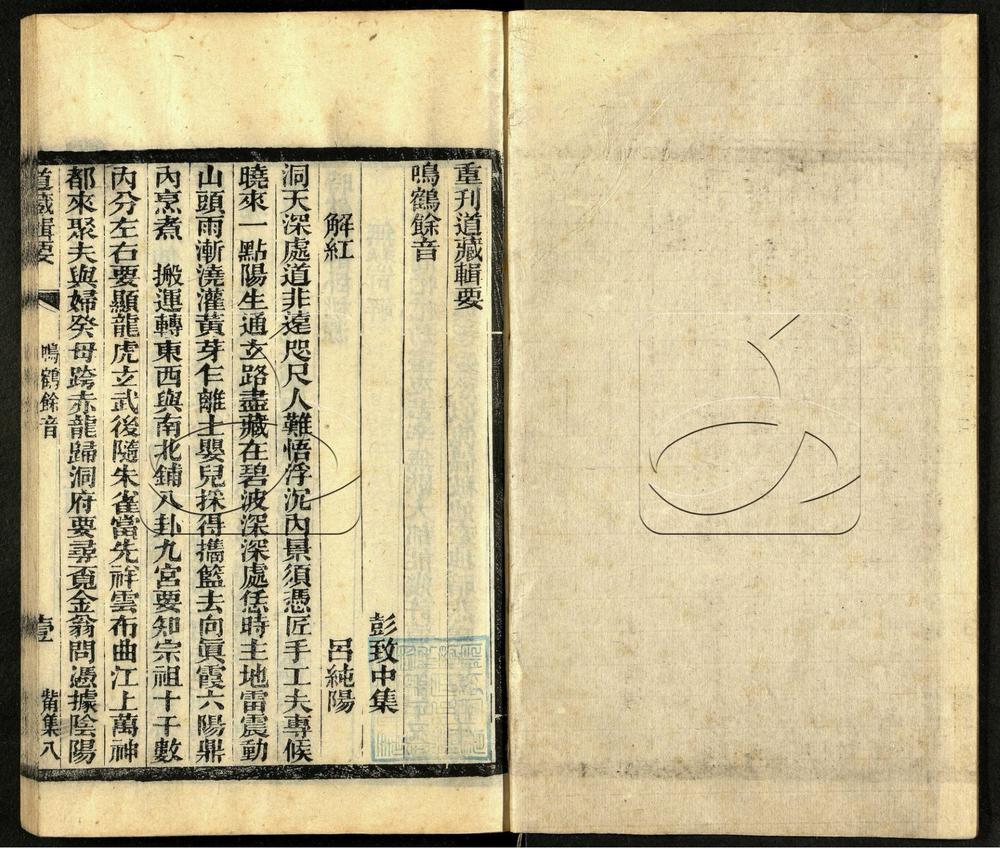 重刊道藏輯要
鳴鶴餘音
彭致中集
解紅　呂純陽
洞天深處道非遠咫尺人難悟浮沉內景須憑匠手工夫專候
曉來一點陽生通玄路盡藏在碧波深深處恁時主地雷震動
山頭雨漸澆灌黃芽乍離土嬰兒採得攜籃去向眞霞六陽鼎
內烹煮　搬運轉東西與南北鋪八卦九宮要知宗祖十干數
內分左右要顯龍虎玄武後隨朱雀當先祥雲布曲江上萬神
都來聚夫與婦癸母跨赤龍歸洞府要尋覓金翁問憑據陰陽
道藏輯要　鳴鶴餘音　壹　觜集八